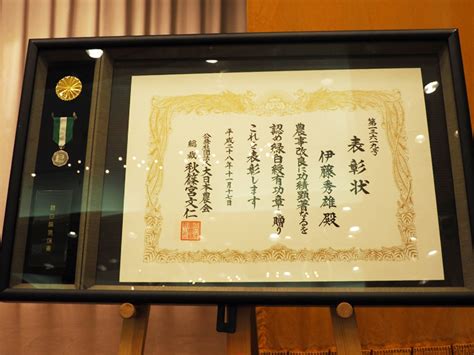 第一三六九号
表彰状
伊藤秀雄殿
農事改良に功績顕著なるを
認め緑白綬有功章を贈り
これを表彰します
平成二十八年十一月十七日
公益社団法人大日本農会
総裁 秋篠宮文仁